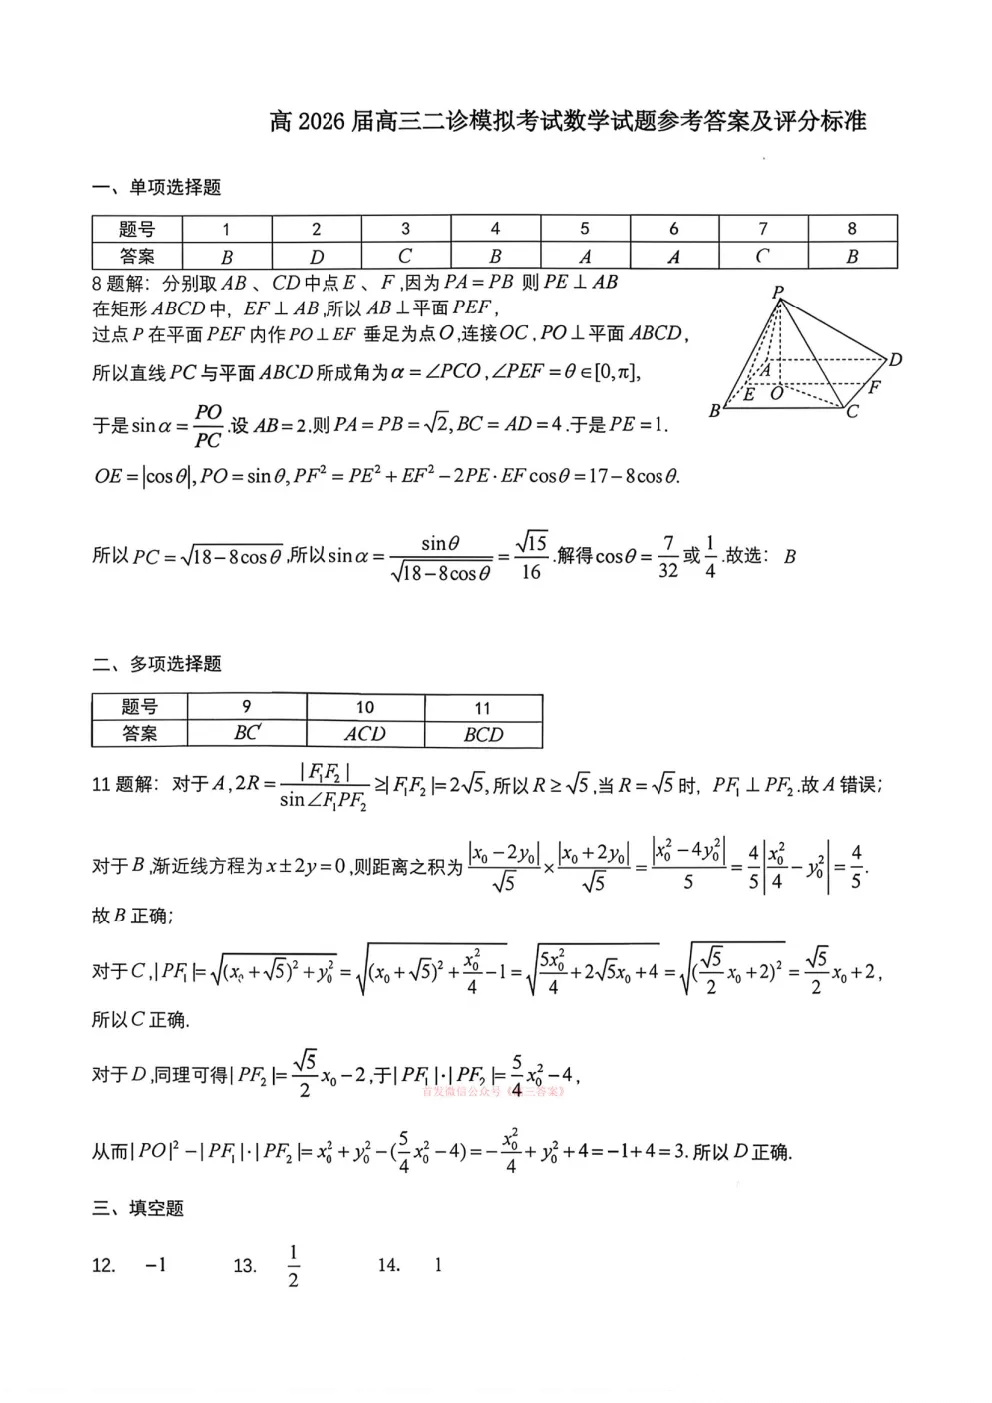 高 2026 届高三二诊模拟考试数学试题参考答案及评分标准
一、单项选择题
题号 1 2 3 4 5 6 7 8
答案 B D C B A A C B
8 题解：分别取 AB 、CD 中点 E 、F ,因为 PA = PB 则 PE ⊥ AB
在矩形 ABCD 中，EF ⊥ AB ,所以 AB ⊥ 平面 PEF ,
过点 P 在平面 PEF 内作 PO ⊥ EF 垂足为点 O ,连接 OC , PO ⊥ 平面 ABCD ,
所以直线 PC 与平面 ABCD 所成角为 α = ∠PCO , ∠PEF = θ ∈ [0,π],
于是 sin α = PO/PC .设 AB = 2 .则 PA = PB = √2, BC = AD = 4 .于是 PE = 1.
OE = |cos θ|, PO = sin θ, PF² = PE² + EF² − 2PE · EF cos θ = 17 − 8cos θ.
所以 PC = √(18 − 8cos θ) ,所以 sin α = sin θ/√(18 − 8cos θ) = √15/16 .解得 cos θ = 7/32 或 1/4 .故选： B
P
A
B
C
D
E
O
F
二、多项选择题
题号 9 10 11
答案 BC ACD BCD
11 题解：对于 A , 2R = |F₁F₂|/sin∠F₁PF₂ ≥| F₁F₂ |= 2√5, 所以 R ≥ √5 ,当 R = √5 时， PF₁ ⊥ PF₂ .故 A 错误；
对于 B ,渐近线方程为 x ± 2y = 0 ,则距离之积为 |x₀ − 2y₀|/√5 × |x₀ + 2y₀|/√5 = |x₀² − 4y₀²|/5 = 4/5 |x₀²/4 − y₀²| = 4/5.
故 B 正确；
对于 C ,| PF₁ |= √((x₀ + √5)² + y₀²) = √((x₀ + √5)² + x₀²/4 − 1) = √(5x₀²/4 + 2√5x₀ + 4) = √((√5/2 x₀ + 2)²) = √5/2 x₀ + 2 ,
所以 C 正确.
对于 D ,同理可得| PF₂ |= √5/2 x₀ − 2 ,于| PF₁ |·| PF₂ |= 5/4 x₀² − 4 ,
首发微信公众号《高三答案》
从而| PO |² −| PF₁ |·| PF₂ |= x₀² + y₀² − (5/4 x₀² − 4) = − x₀²/4 + y₀² + 4 = −1 + 4 = 3. 所以 D 正确.
三、填空题
12. −1 13. 1/2 14. 1